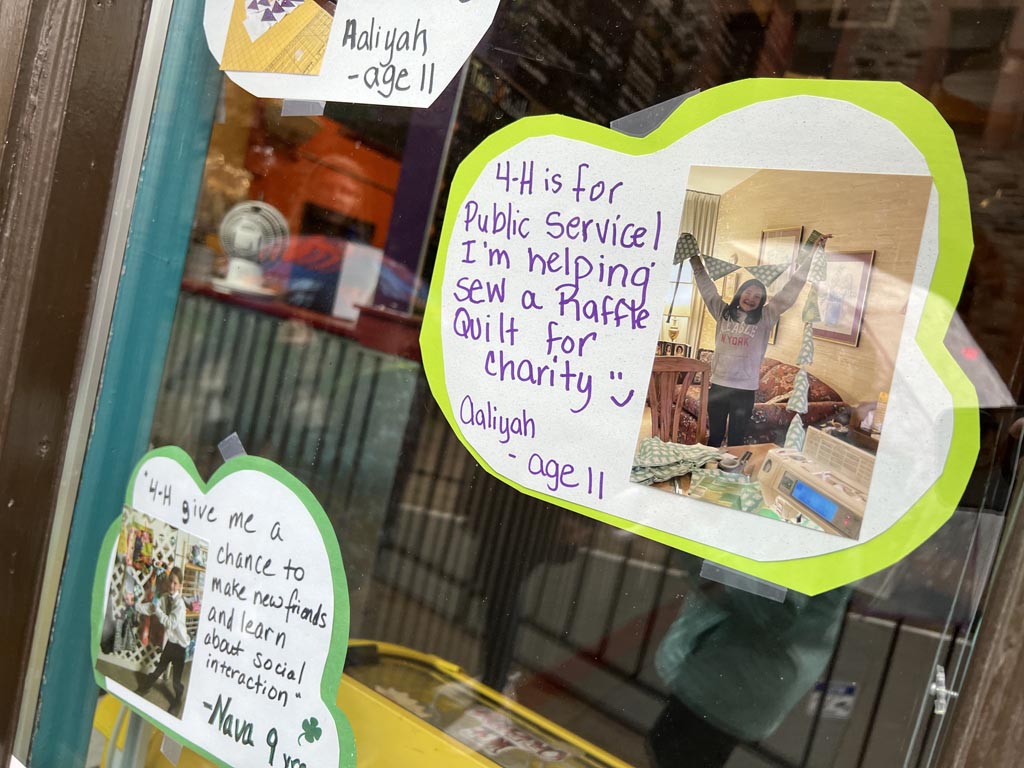 Aaliyah
-age 11
4-H is for
Public Service!
I'm helping
sew a Raffle
Quilt for
charity
Aaliyah
- age 11
"4-H give me a
chance to
make new friends
and learn
about social
interaction"
-Nava 9 yrs